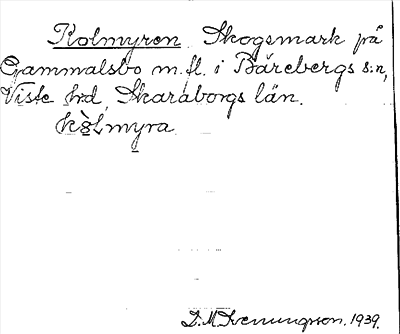 Kolmyren Skogsmark på
Gammalsbo m.fl. i Bärebergs s:n,
Viste hrd, Skaraborgs län.
kòlmyra
D.M. Svenungsson. 1939.